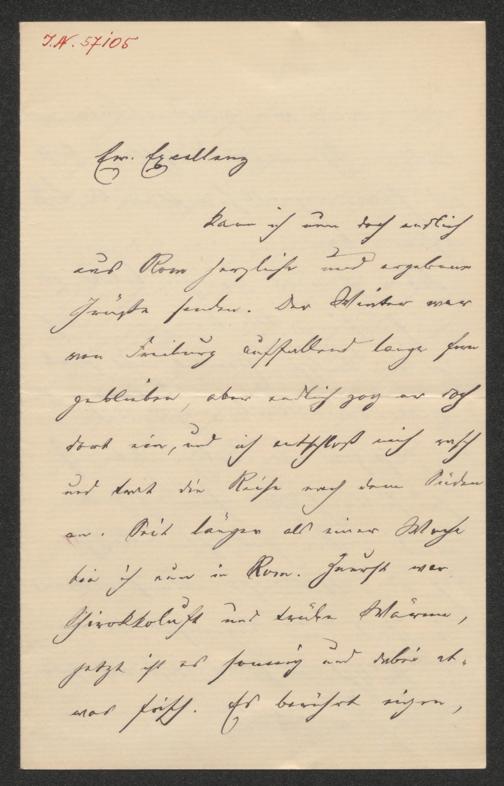 J.N. 57105
Ew. Excellenz
kann ich nun doch endlich
aus Rom herzliche und ergebene
Grüße senden. Der Winter war
von Freiburg auffallend lange fern
geblieben, aber endlich zog er doch
dort ein, und ich entschloß mich rasch
und trat die Reise nach dem Süden
an. Seit länger als einer Woche
bin ich nun in Rom. Zuerst war
Schirokkoluft und trübe Wärme,
jetzt ist es sonnig und dabei et-
was frisch. Es berührt eigen,